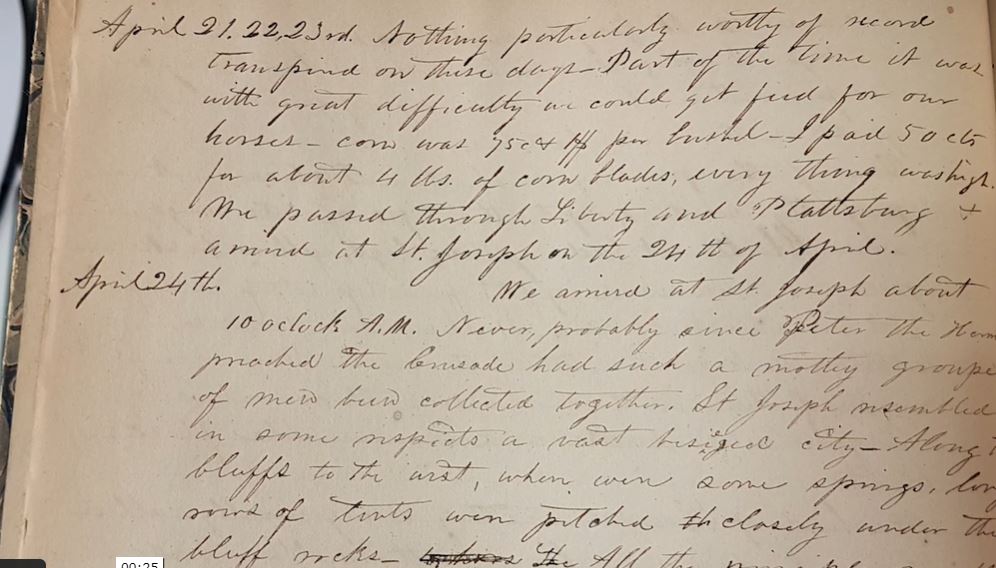 April 21. 22, 23rd. Nothing particularly worthy of record
transpired on these days - Part of the time it was
with great difficulty we could get feed for our
horses - corn was 75c per bushel - I paid 50 cts
for about 4 lbs. of corn blades, every thing was high.
We passed through Liberty and Plattsburg &
arrived at St. Joseph on the 24th of April.
April 24th. We arrived at St. Joseph about
10 oclock A.M. Never, probably since Peter the
preached the Crusade had such a motley groupe
of men been collected together. St Joseph resembled
in some respects a vast besieged city - Along
bluffs to the west, where were some springs,
rows of tents were pitched closely under the
bluff rocks - the All the
00:25